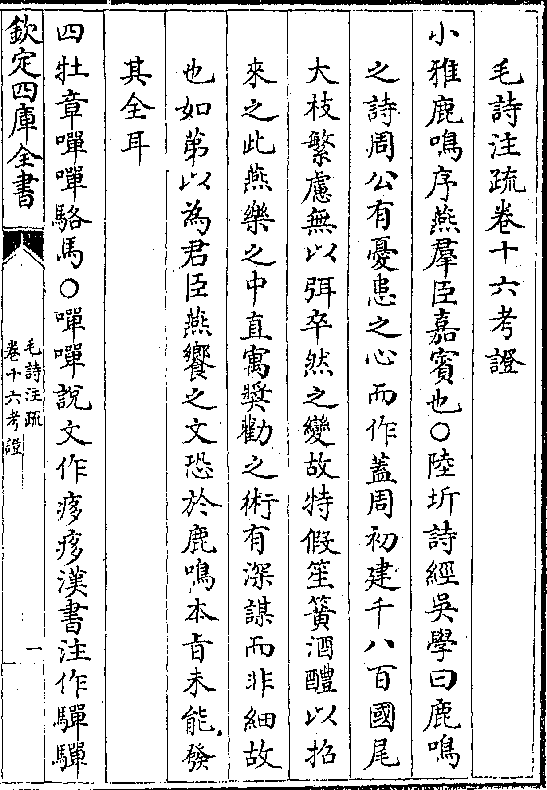 毛詩注疏卷十六考證
小雅鹿鳴序燕羣臣嘉賓也○陸圻詩經吳學曰鹿鳴
之詩周公有憂患之心而作蓋周初建千八百國尾
大枝繁慮無以弭卒然之變故特假笙簧酒醴以招
來之此燕樂之中直寓奬勸之術有深謀而非細故
也如第以為君臣燕饗之文恐於鹿鳴本旨未能發
其全耳
四牡章嘽嘽駱馬○嘽嘽說文作痑痑漢書注作驒驒
欽定四庫全書
毛詩注疏
卷十六考證
一